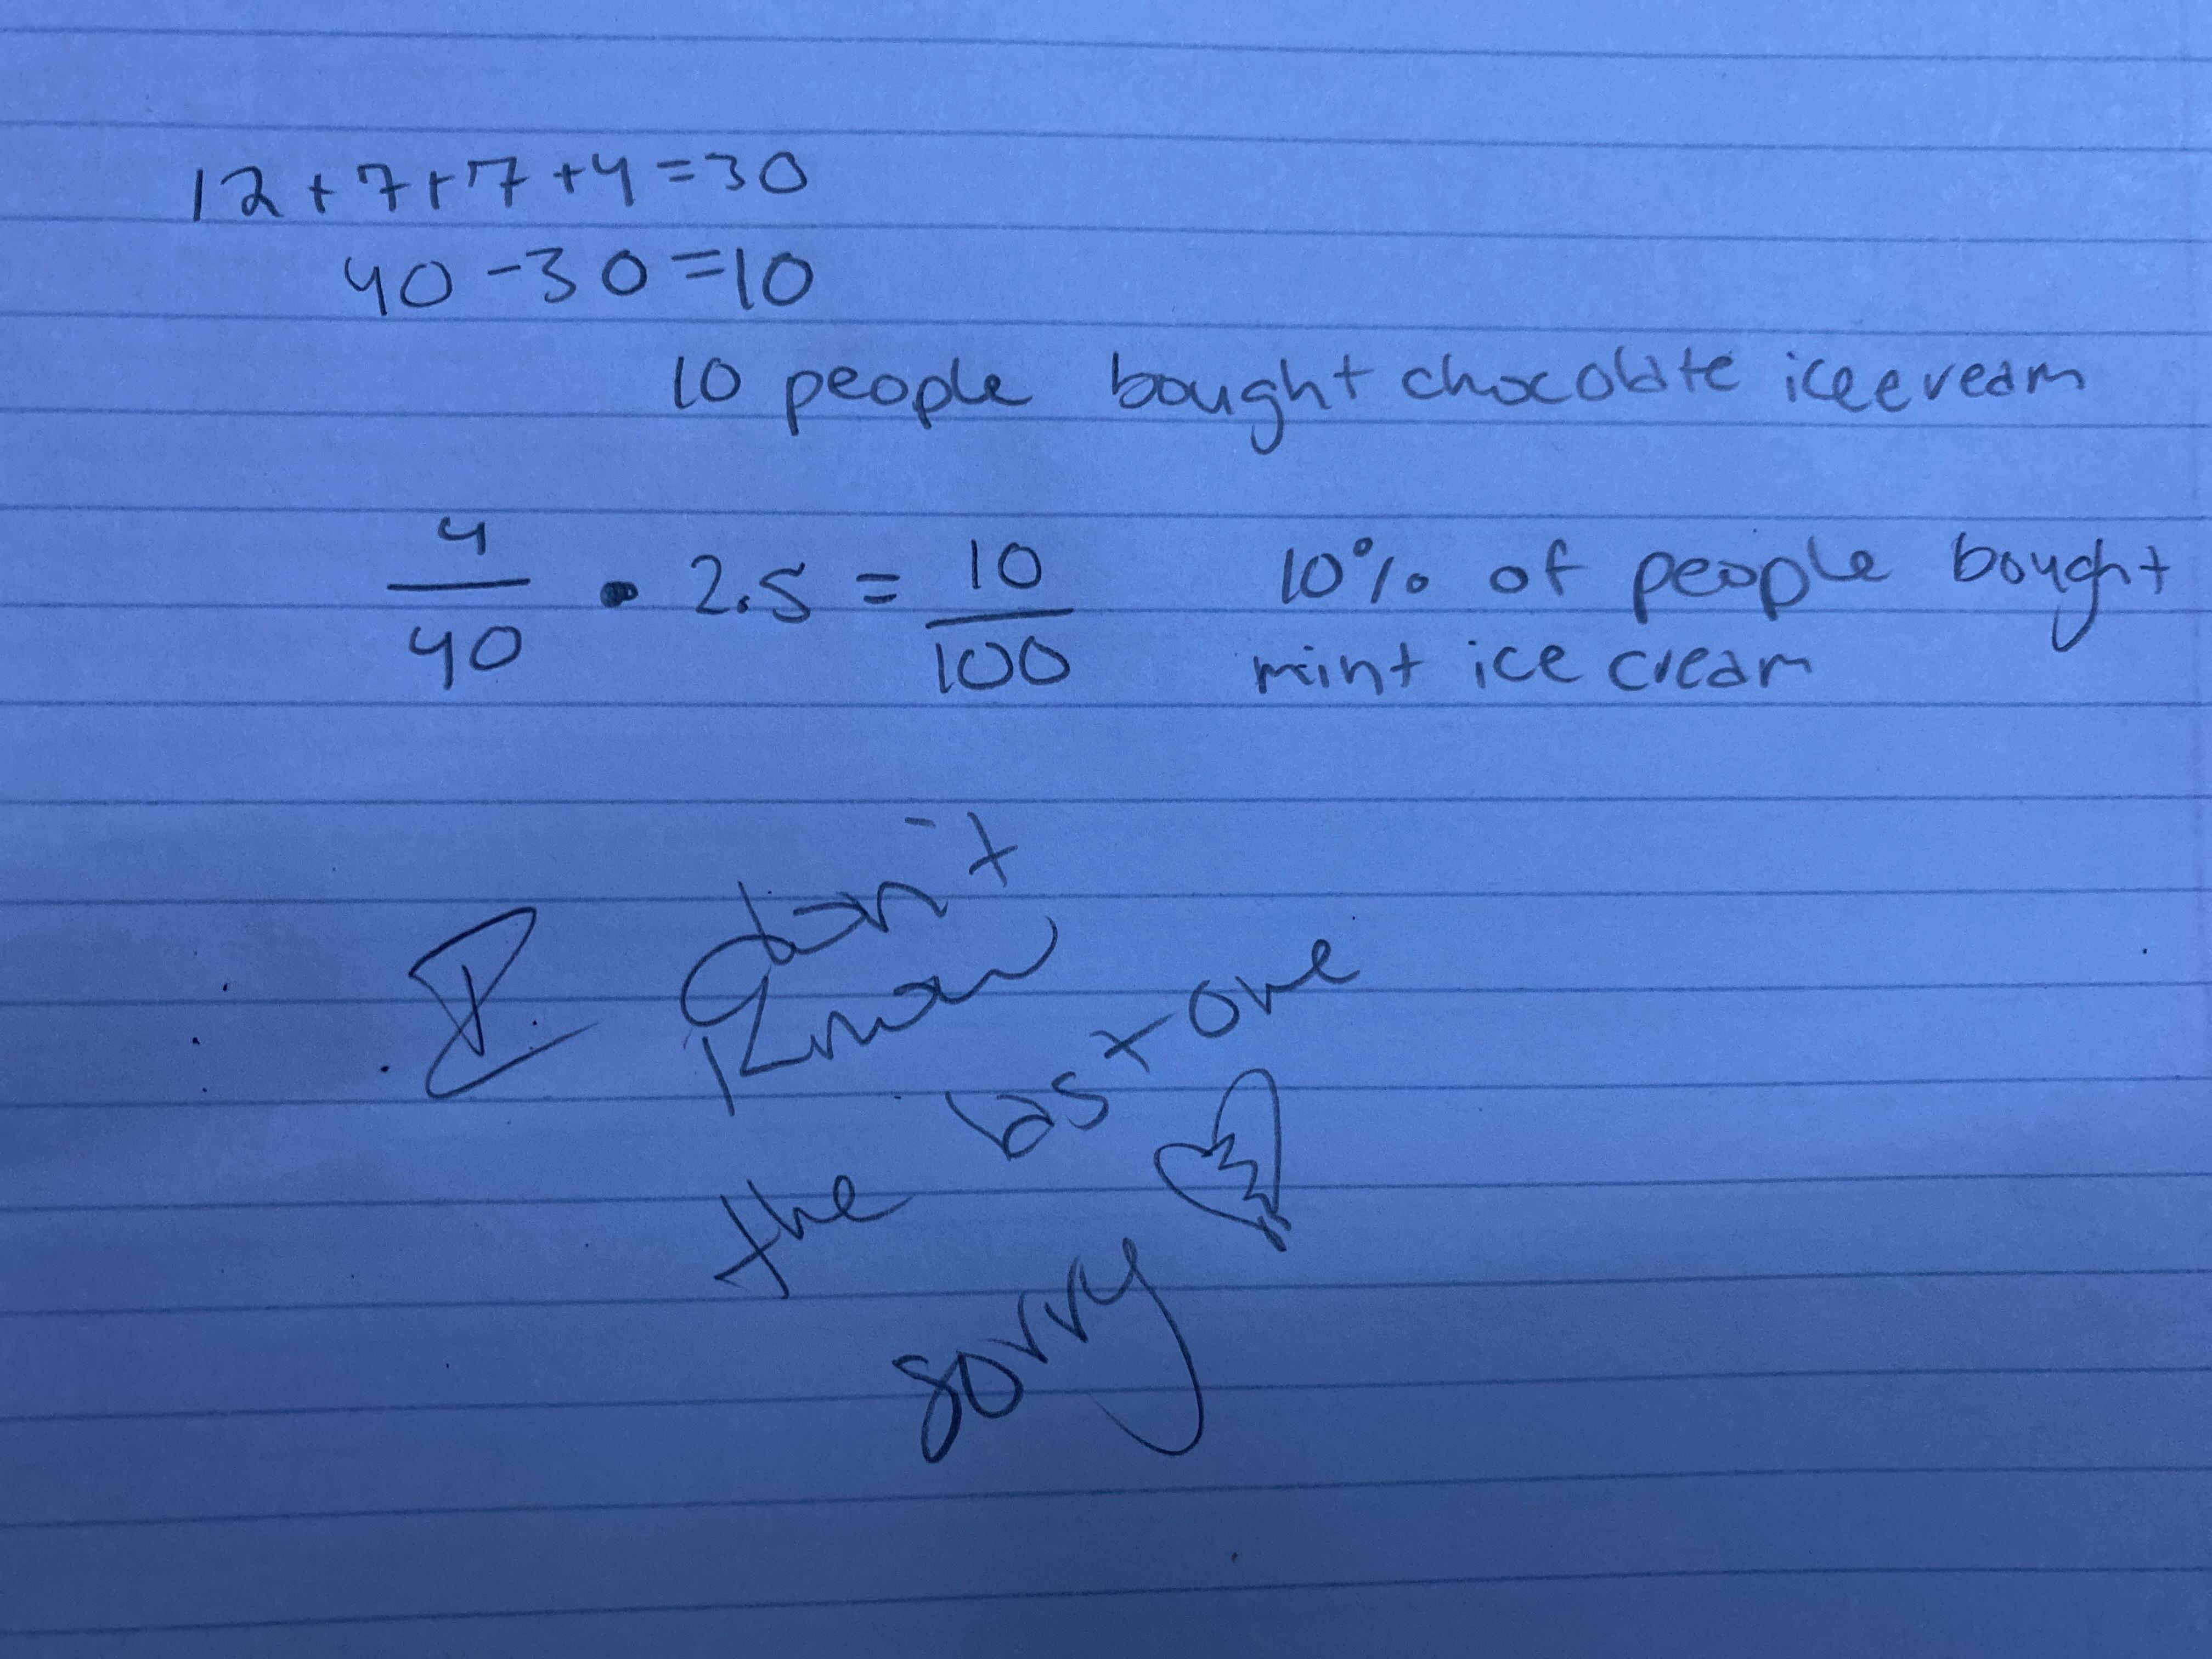 12+7+7+4=30
40-30=10
10 people bought chocolate iceeveam
4/40 • 2.5 = 10/100 10% of people bought
mint ice cream
I don't
know
the last one
sorry